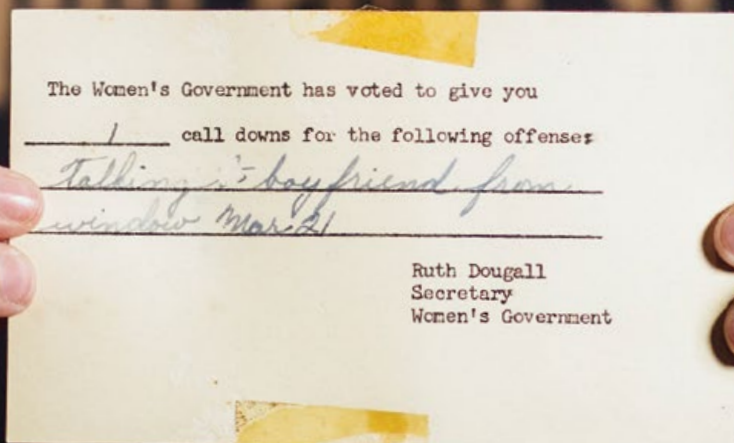 The Women's Government has voted to give you
1 call downs for the following offense:
talking to boyfriend from
window Mar. 21
Ruth Dougall
Secretary
Women's Government